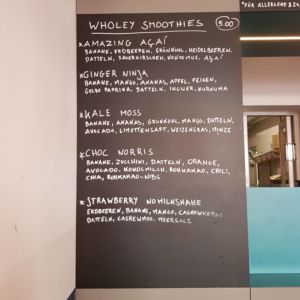 WHOLEY SMOOTHIES 5.00
AMAZING AÇAÍ
BANANE, ERDBEEREN, GRÜNKOHL, HEIDELBEEREN,
DATTELN, SAUERKIRSCHEN, KOKOSMUS, AÇAÍ
GINGER NINJA
BANANE, MANGO, ANANAS, APFEL, FEIGEN,
GELBE PAPRIKA, DATTELN, INGWER, KURKUMA
KALE MOSS
BANANE, ANANAS, GRÜNKOHL, MANGO, DATTELN,
AVOCADO, LIMETTENSAFT, WEIZENGRAS, MINZE
CHOC NORRIS
BANANE, ZUCCHINI, DATTELN, ORANGE,
AVOCADO, KOKOSMILCH, ROHKAKAO, CHILI,
CHIA, ROHKAKAO-NIBS
STRAWBERRY NOMILKSHAKE
ERDBEEREN, BANANE, MANGO, CASHEWKERNE,
DATTELN, CASHEWMUS, MEERSALZ
*FÜR ALLERGENE &